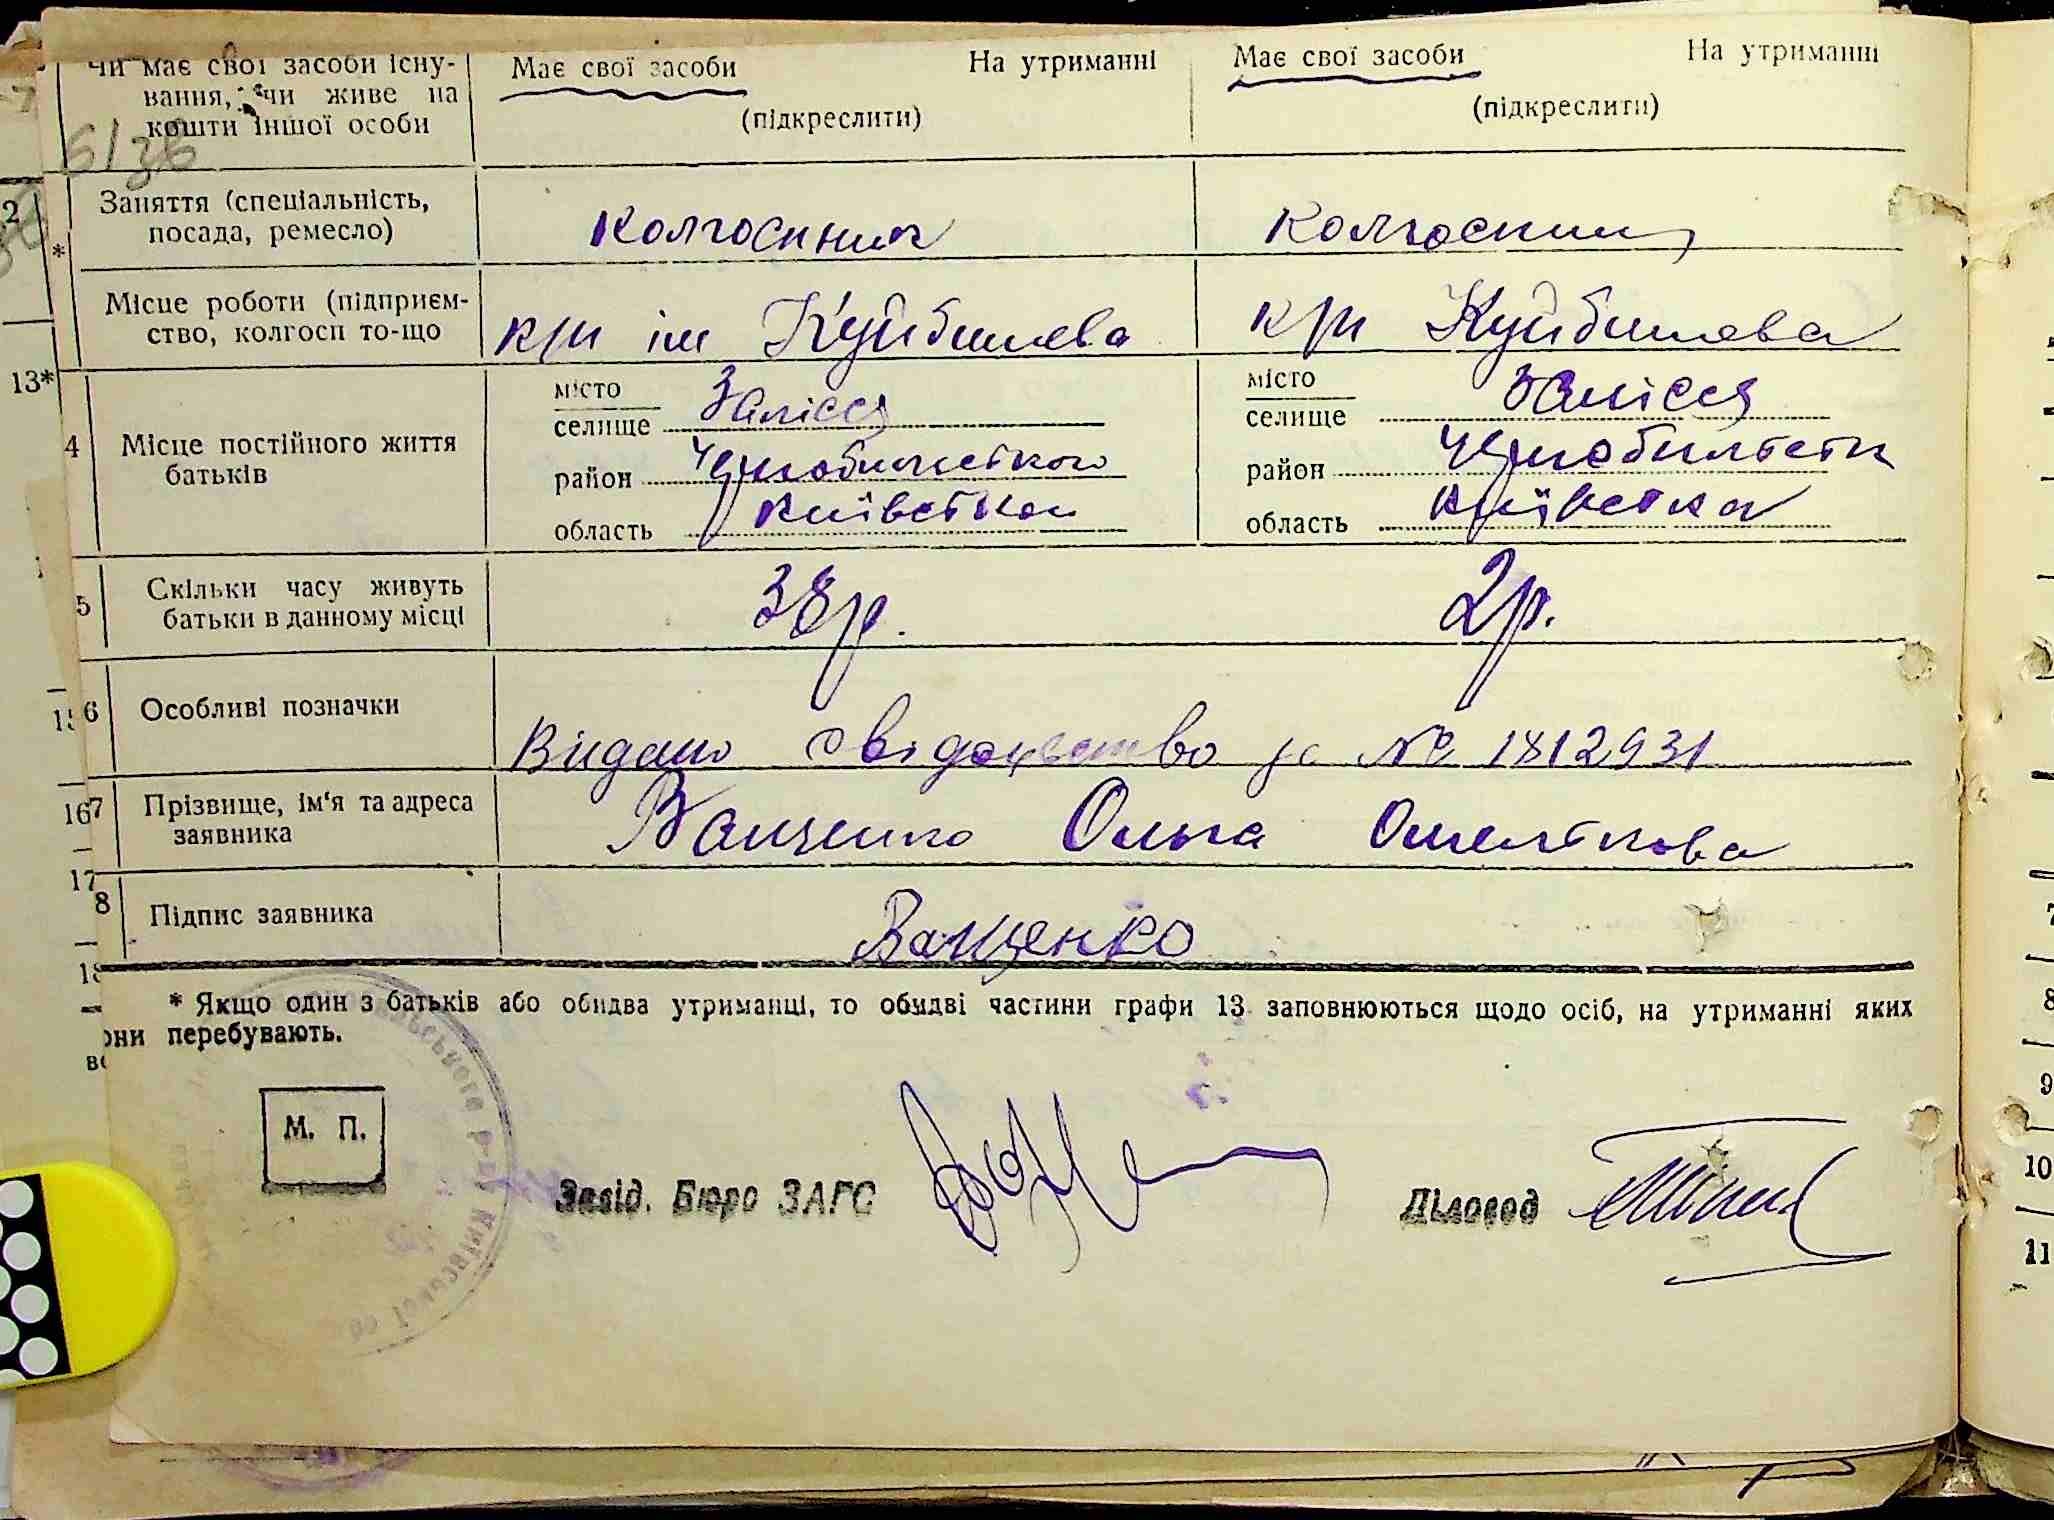 Чи має свої засоби існу- Має свої засоби На утриманні Має свої засоби На утриманні
вання, чи живе на
кошти іншої особи (підкреслити) (підкреслити)
Заняття (спеціальність, колгоспник колгоспниц
посада, ремесло)
*
Місце роботи (підприєм-
ство, колгосп то-що к/г ім Куйбишева к/г Куйбишева
13*
4 Місце постійного життя
батьків
місто Залісся місто Залісся
селище селище
район Чернобильського район Чернобильськ
область Київської область Київська
5 Скільки часу живуть
батьки в данному місці 38р. 2р.
6 Особливі позначки
Видано свідоцтво за № 1812931
7 Прізвище, ім'я та адреса
заявника Ващенко Ольга Омелькова
8 Підпис заявника Ващенко
* Якщо один з батьків або обидва утриманці, то обидві частини графи 13 заповнюються щодо осіб, на утриманні яких
они перебувають.
М. П.
Завід. Бюро ЗАГС Діловод
ського р-ну Київської об
16
17
18
8
9
10
11